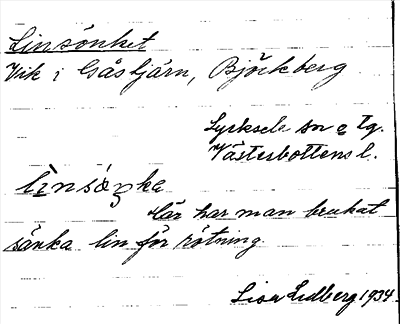 Linsänket
Vik i Gåstjärn, Björkberg
Lycksele sn o tg.
Västerbottens l.
lìnsäŋka
Här har man brukat
sänka lin för rötning.
Lisa Lidberg 1934